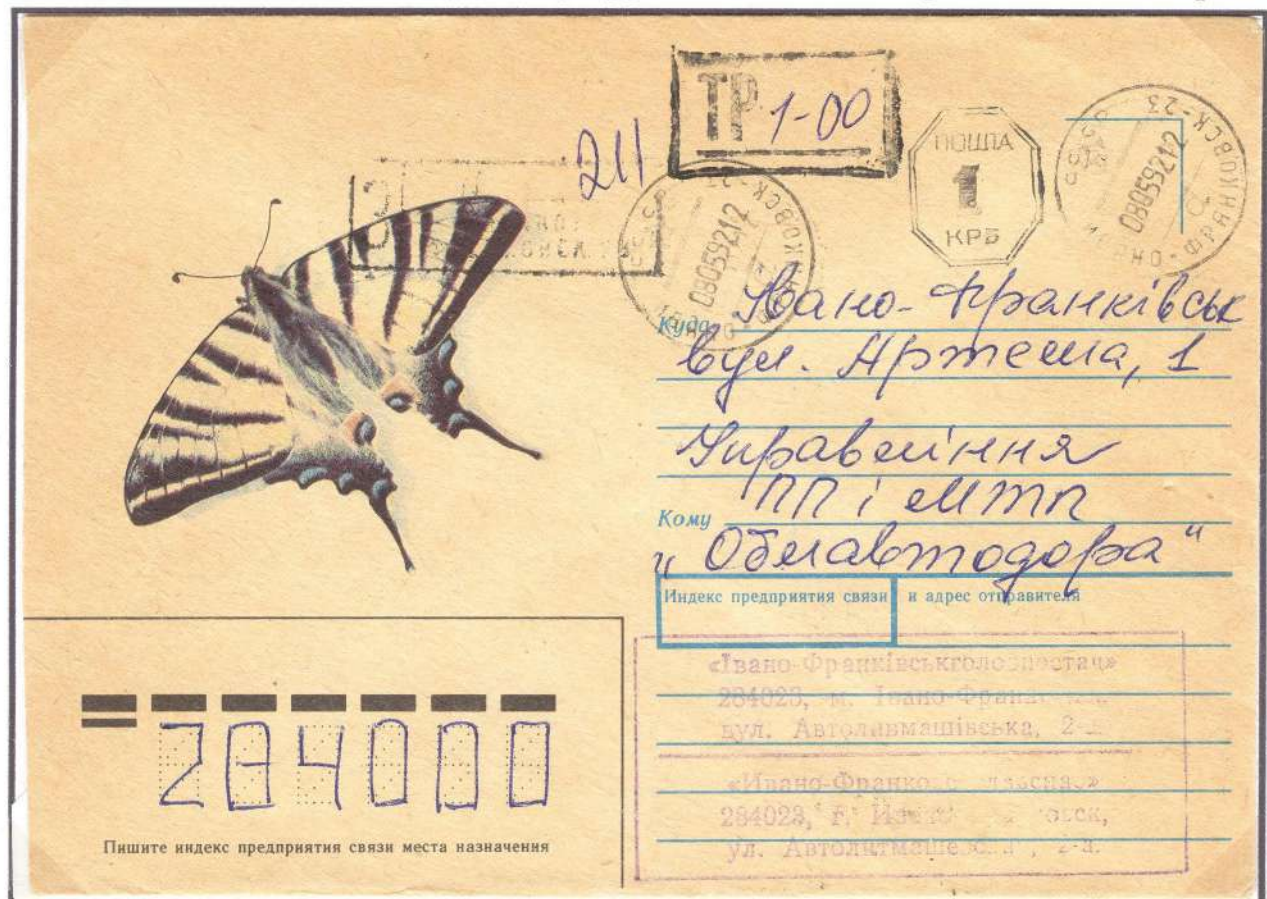 ТР 1-00
211
ПОШТА
1
КРБ
ИВАНО-ФРАНКОВСК-23
08059212
ИВАНО-ФРАНКОВСК-23
08059212
Куда Івано-Франківськ
вул. Артема, 1
Управління
ПП і МТП
Кому
"Облавтодора"
Индекс предприятия связи и адрес отправителя
«Івано-Франківськголовпостач»
284023, м. Івано-
вул. Автоливмашівська, 2-а
284023, г.
ул. 2-а.
284000
Пишите индекс предприятия связи места назначения